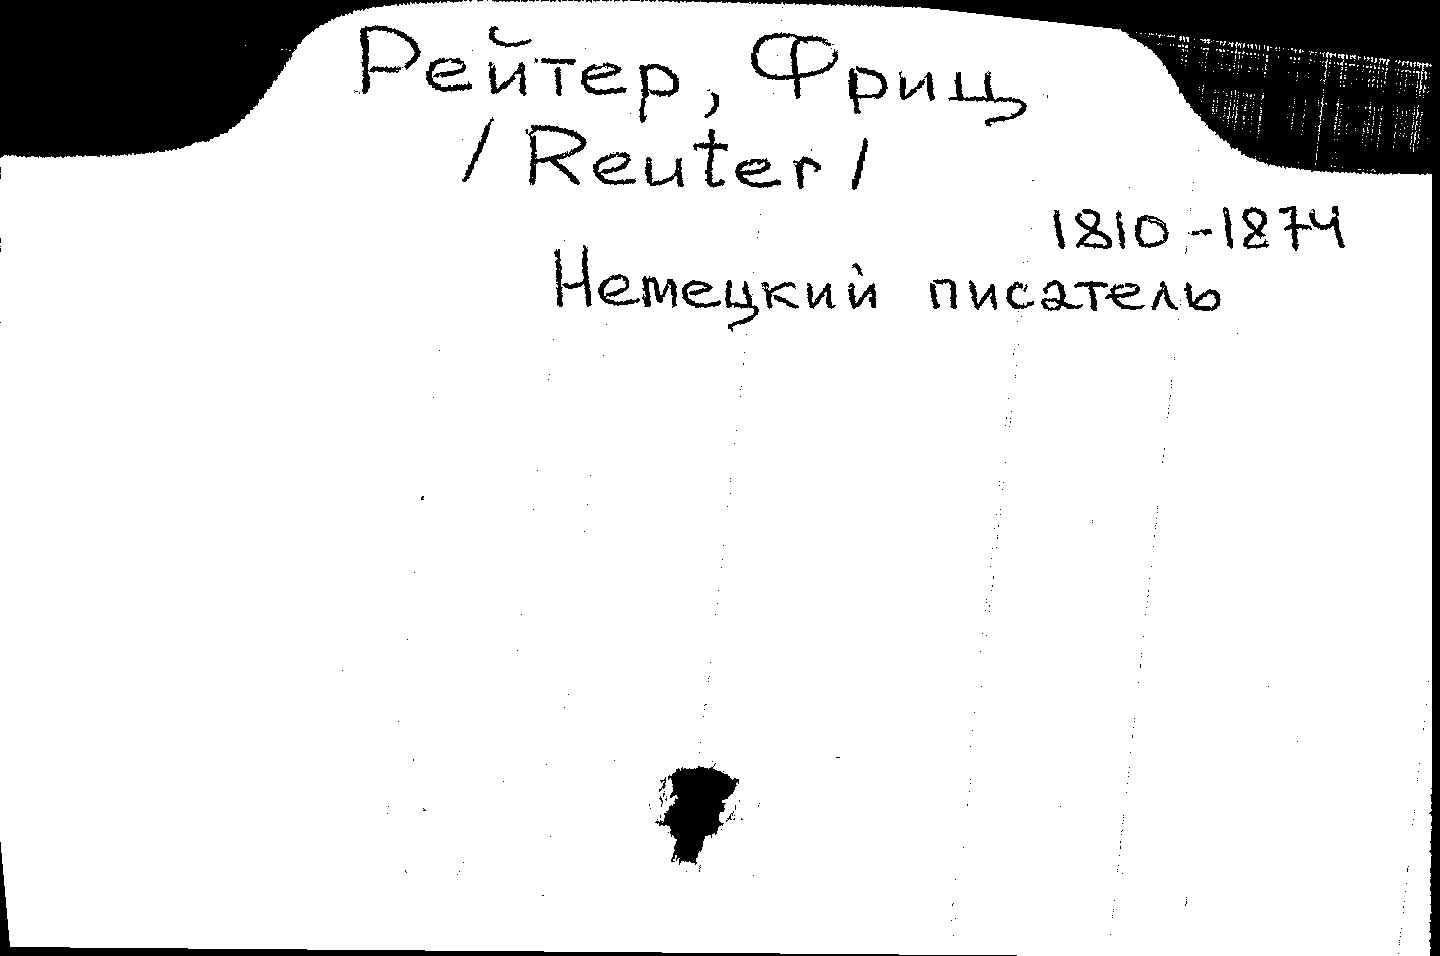 Рейтер, Фриц
/ Reuter /
1810-1874
Немецкий писатель